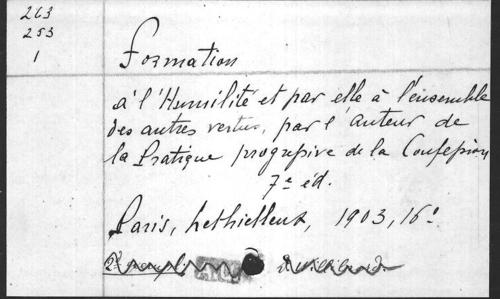 263
253
1
Formation
à l'Humilité et par elle à l'ensemble
des autres vertus, par l'auteur de
la Pratique progressive de la Confession
7e éd.
Paris, Lethielleux, 1903, 16°